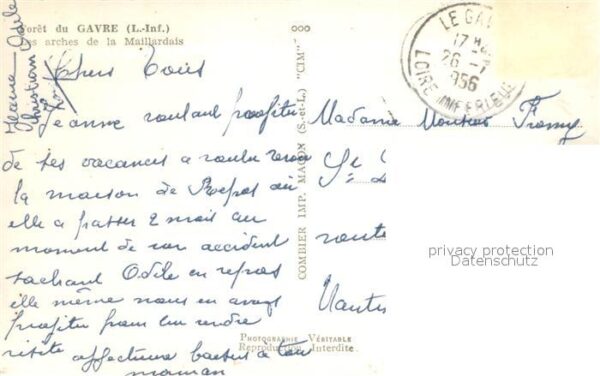 Forêt du GAVRE (L.-Inf.)
Les arches de la Maillardais
Jeanne Odile
Christian
Chers Tous
Jeanne voulant profiter
de ses vacances a voulu revoir
la maison de Repos où
elle a passer 2 mois au
moment de son accident
sachant Odile en repos
elle même nous en avons
profiter pour lui rendre
visite affectueux baisers a tous
maman
COMBIER IMP. MACON (S.-et-L.) "CIM"
LE GAVRE
17 H
26 - 7
1956
LOIRE INFERIEURE
Madame Monsieur
route
Nantes
PHOTOGRAPHIE VÉRITABLE
Reproduction Interdite
privacy protection
Datenschutz